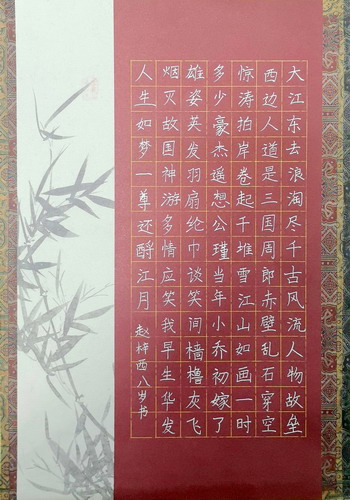 大江东去浪淘尽千古风流人物故垒
西边人道是三国周郎赤壁乱石穿空
惊涛拍岸卷起千堆雪江山如画一时
多少豪杰遥想公瑾当年小乔初嫁了
雄姿英发羽扇纶巾谈笑间樯橹灰飞
烟灭故国神游多情应笑我早生华发
人生如梦一尊还酹江月
赵梓西八岁书